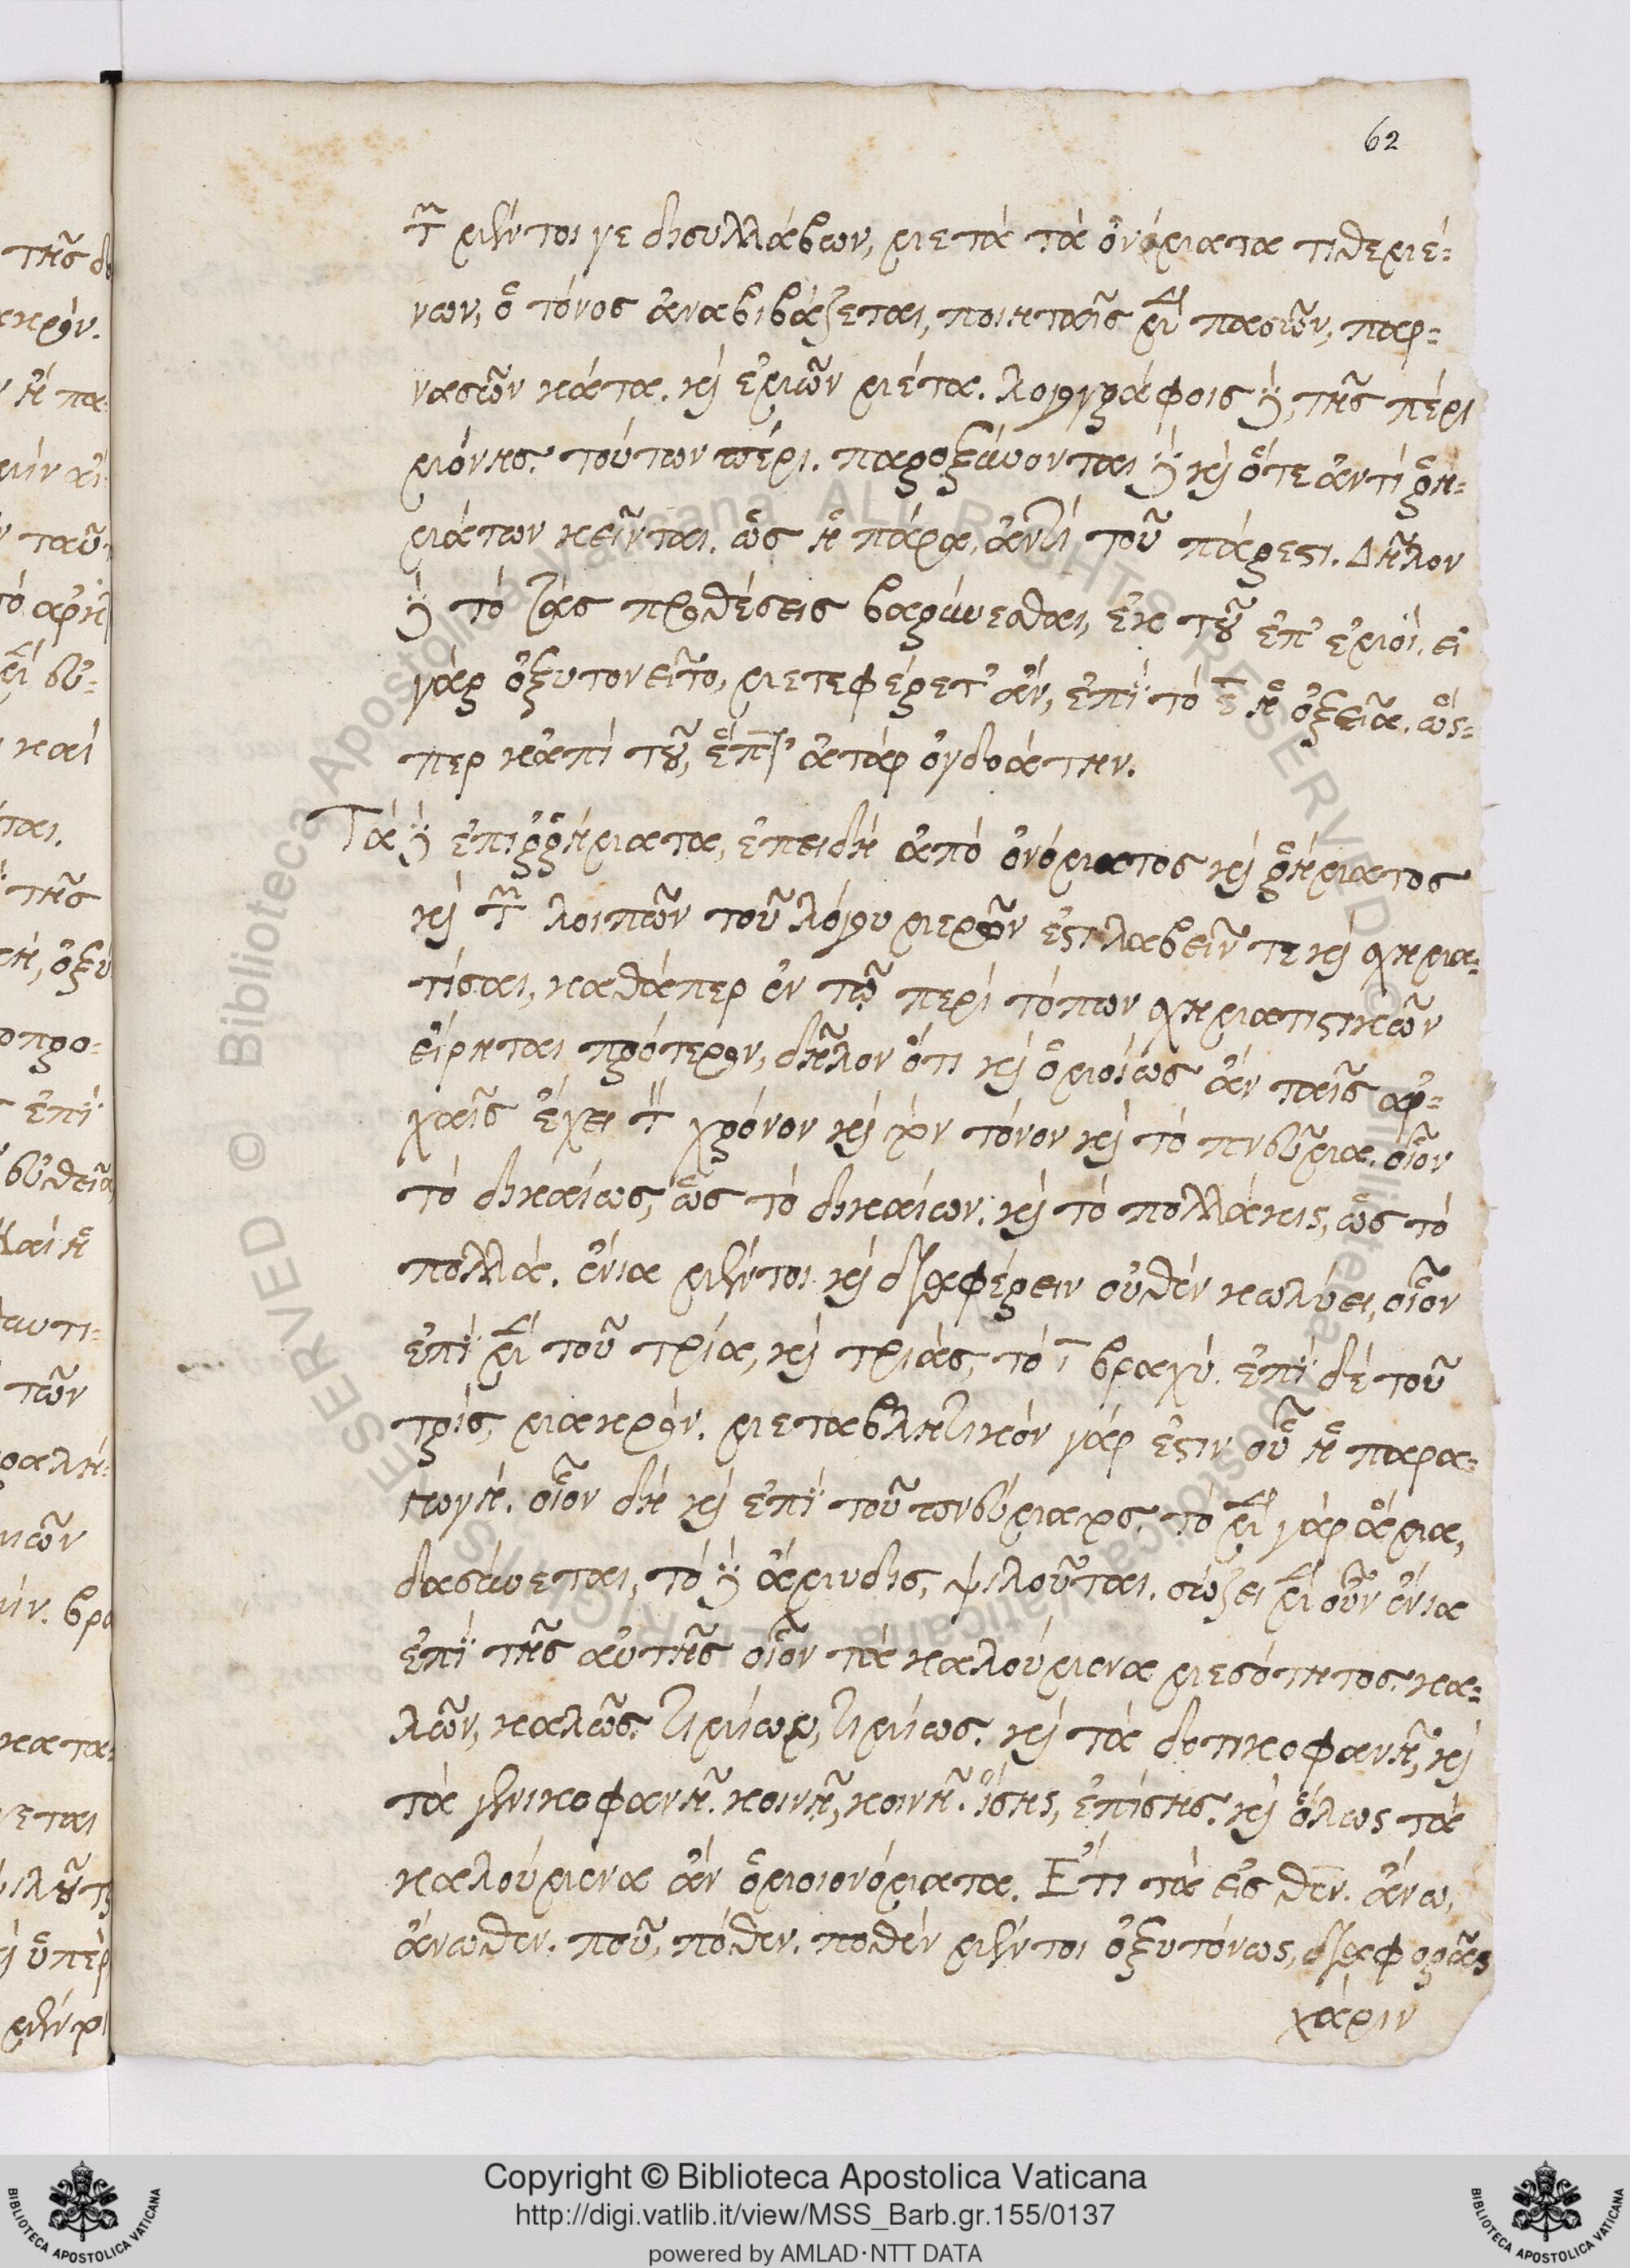 62
τῶν μέντοι γε δισυλλάβων, μετὰ τὰ ὀνόματα τιθεμέ-
νων, ὁ τόνος ἀναβιβάζεται, ποιηταῖς μὲν πασῶν, παρ-
νασῶν κάτα. καὶ ἐμῶν μέτα. λογογράφοις δὲ, τῆς πέρι
μόνης. τούτων πέρι. παροξύνονται δὲ καὶ ὅτε ἀντὶ ῥη-
μάτων κεῖνται. ὡς ἡ πάρα, ἀντὶ τοῦ πάρεστι. Δῆλον
δὲ τὸ τὰς προθέσεις βαρύνεσθαι, ἐκ τοῦ ἐπ' ἐμοί. εἰ
γὰρ ὀξυτονεῖτο, μετεφέρετ' ἂν, ἐπὶ τὸ ε ἡ ὀξεῖα. ὥσ-
περ κἀπὶ τοῦ, ἕπτ' ἀτὰρ ὀγδοάτην.
Τὰ δὲ ἐπιῤῥήματα, ἐπειδὴ ἀπὸ ὀνόματος καὶ ῥήματος
καὶ τῶν λοιπῶν τοῦ λόγου μερῶν ἐστι λαβεῖν τε καὶ σχημα-
τίσαι, καθάπερ ἐν τῷ περὶ τόπων σχηματιστικῶν
εἴρηται πρότερον, δῆλον ὅτι καὶ ὁμοίως ἂν ταῖς ἀρ-
χαῖς ἔχει τὸν χρόνον καὶ τὸν τόνον καὶ τὸ πνεῦμα. οἷον
τὸ δικαίως, ὡς τὸ δικαίων. καὶ τὸ πολλάκις, ὡς τὸ
πολλά. ἔνια μέντοι καὶ διαφέρειν οὐθὲν κωλύει, οἷον
ἐπὶ μὲν τοῦ τρία, καὶ τριάς, τὸ ι βραχύ. ἐπὶ δὲ τοῦ
τρίς, μακρόν. μεταβλητικὸν γάρ ἐστιν οὗ ἡ παρα-
γωγή. οἷον δὴ καὶ ἐπὶ τοῦ πνεύματος. τὸ μὲν γὰρ ἅμα,
δασύνεται, τὸ δὲ ἄμυδις, ψιλοῦται. σώζει μὲν οὖν ἔνια
ἐπὶ τῆς αὐτῆς οἷον τὰ καλούμενα μεσότητος. κα-
λῶν, καλῶς. τιμίων, τιμίως. καὶ τὰ δοτικοφανῆ, καὶ
τὰ γενικοφανῆ. κοινῇ, κοινῆ. ἴσης, ἐπίσης. καὶ ὅλως τὰ
καλούμενα ἂν ὁμοιονόματα. Ἔτι τὰ εἰς θεν. ἄνω,
ἄνωθεν. ποῦ, πόθεν. ποθὲν μέντοι ὀξυτόνως, διαφορᾶς
χάριν
Copyright © Biblioteca Apostolica Vaticana
http://digi.vatlib.it/view/MSS_Barb.gr.155/0137
powered by AMLAD·NTT DATA